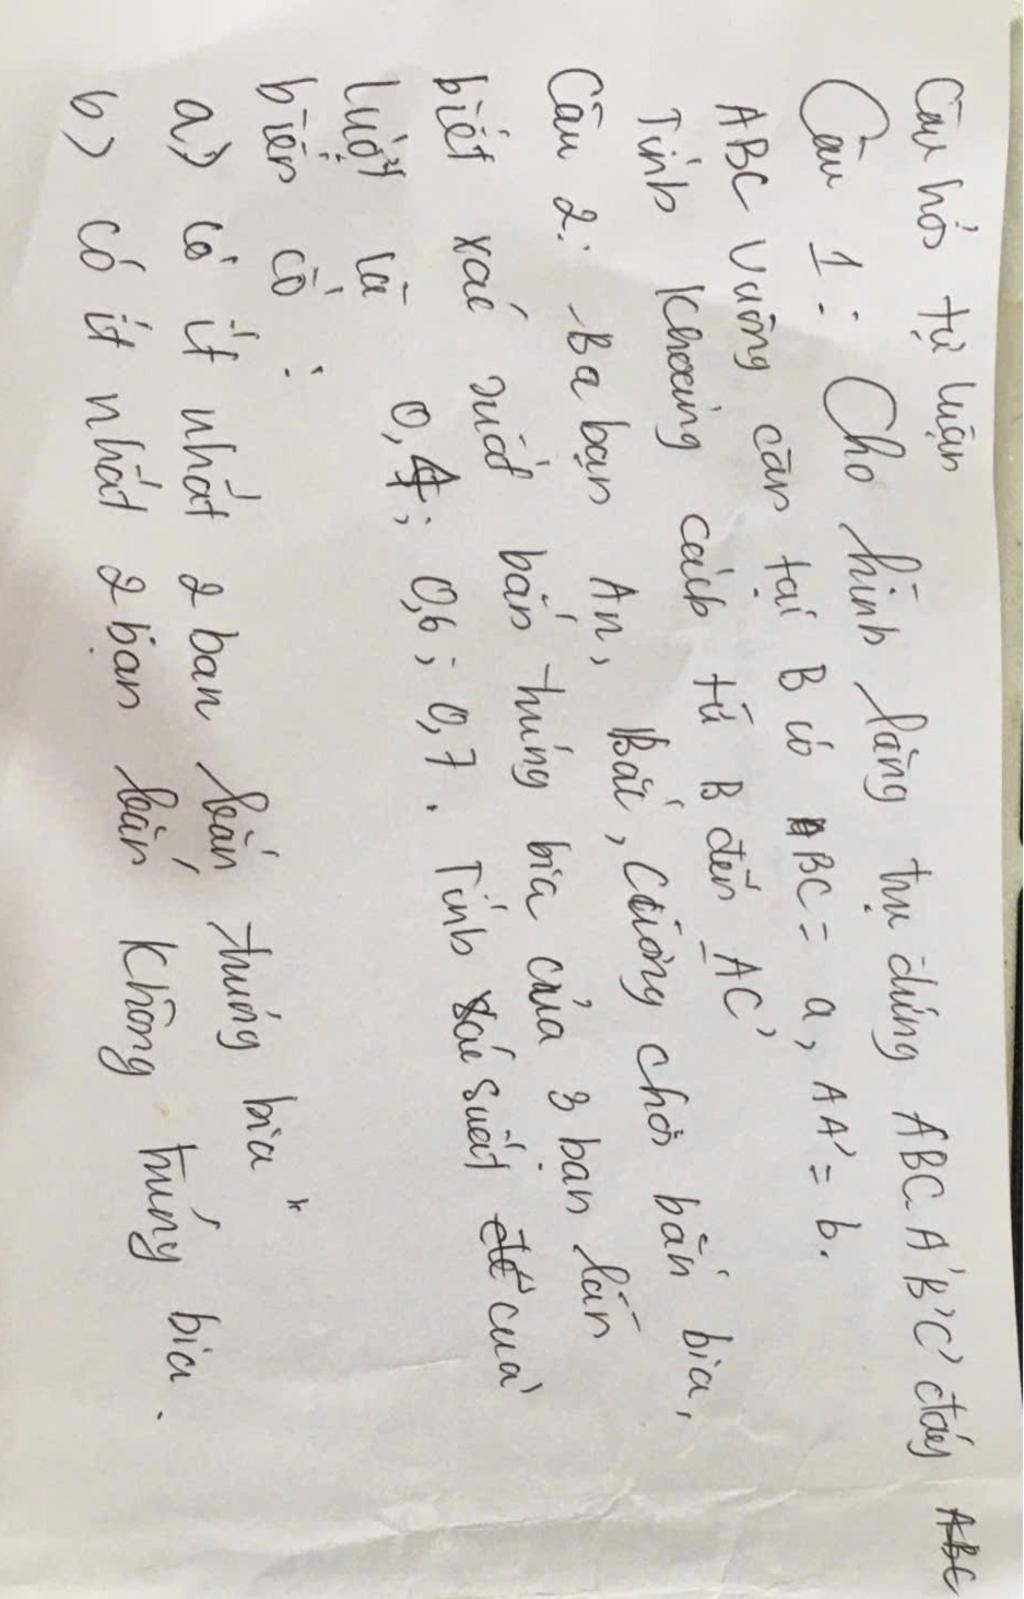 Câu hỏi tự luận
Câu 1: Cho hình lăng trụ đứng ABC.A'B'C' đáy
ABC vuông cân tại B có BC = a, AA' = b.
Tính khoảng cách từ B đến AC'
Câu 2: Ba bạn An, Bắc, Cường chơi bắn bia,
biết xác suất bắn trúng bia của 3 bạn lần
lượt là 0,4; 0,6; 0,7. Tính xác suất của
biến cố:
a) có ít nhất 2 bạn bắn trúng bia"
b) có ít nhất 2 bạn bắn không trúng bia.